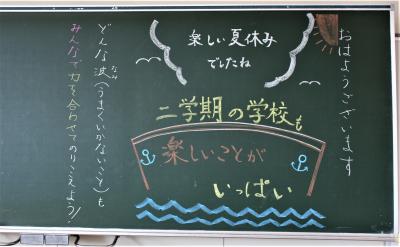 おはようございます
楽しい夏休み
でしたね
二学期の学校も
楽しいことが
いっぱい
どんな波(なみ)(うまくいかないこと)も
みんなで力を合わせてのりこえよう!